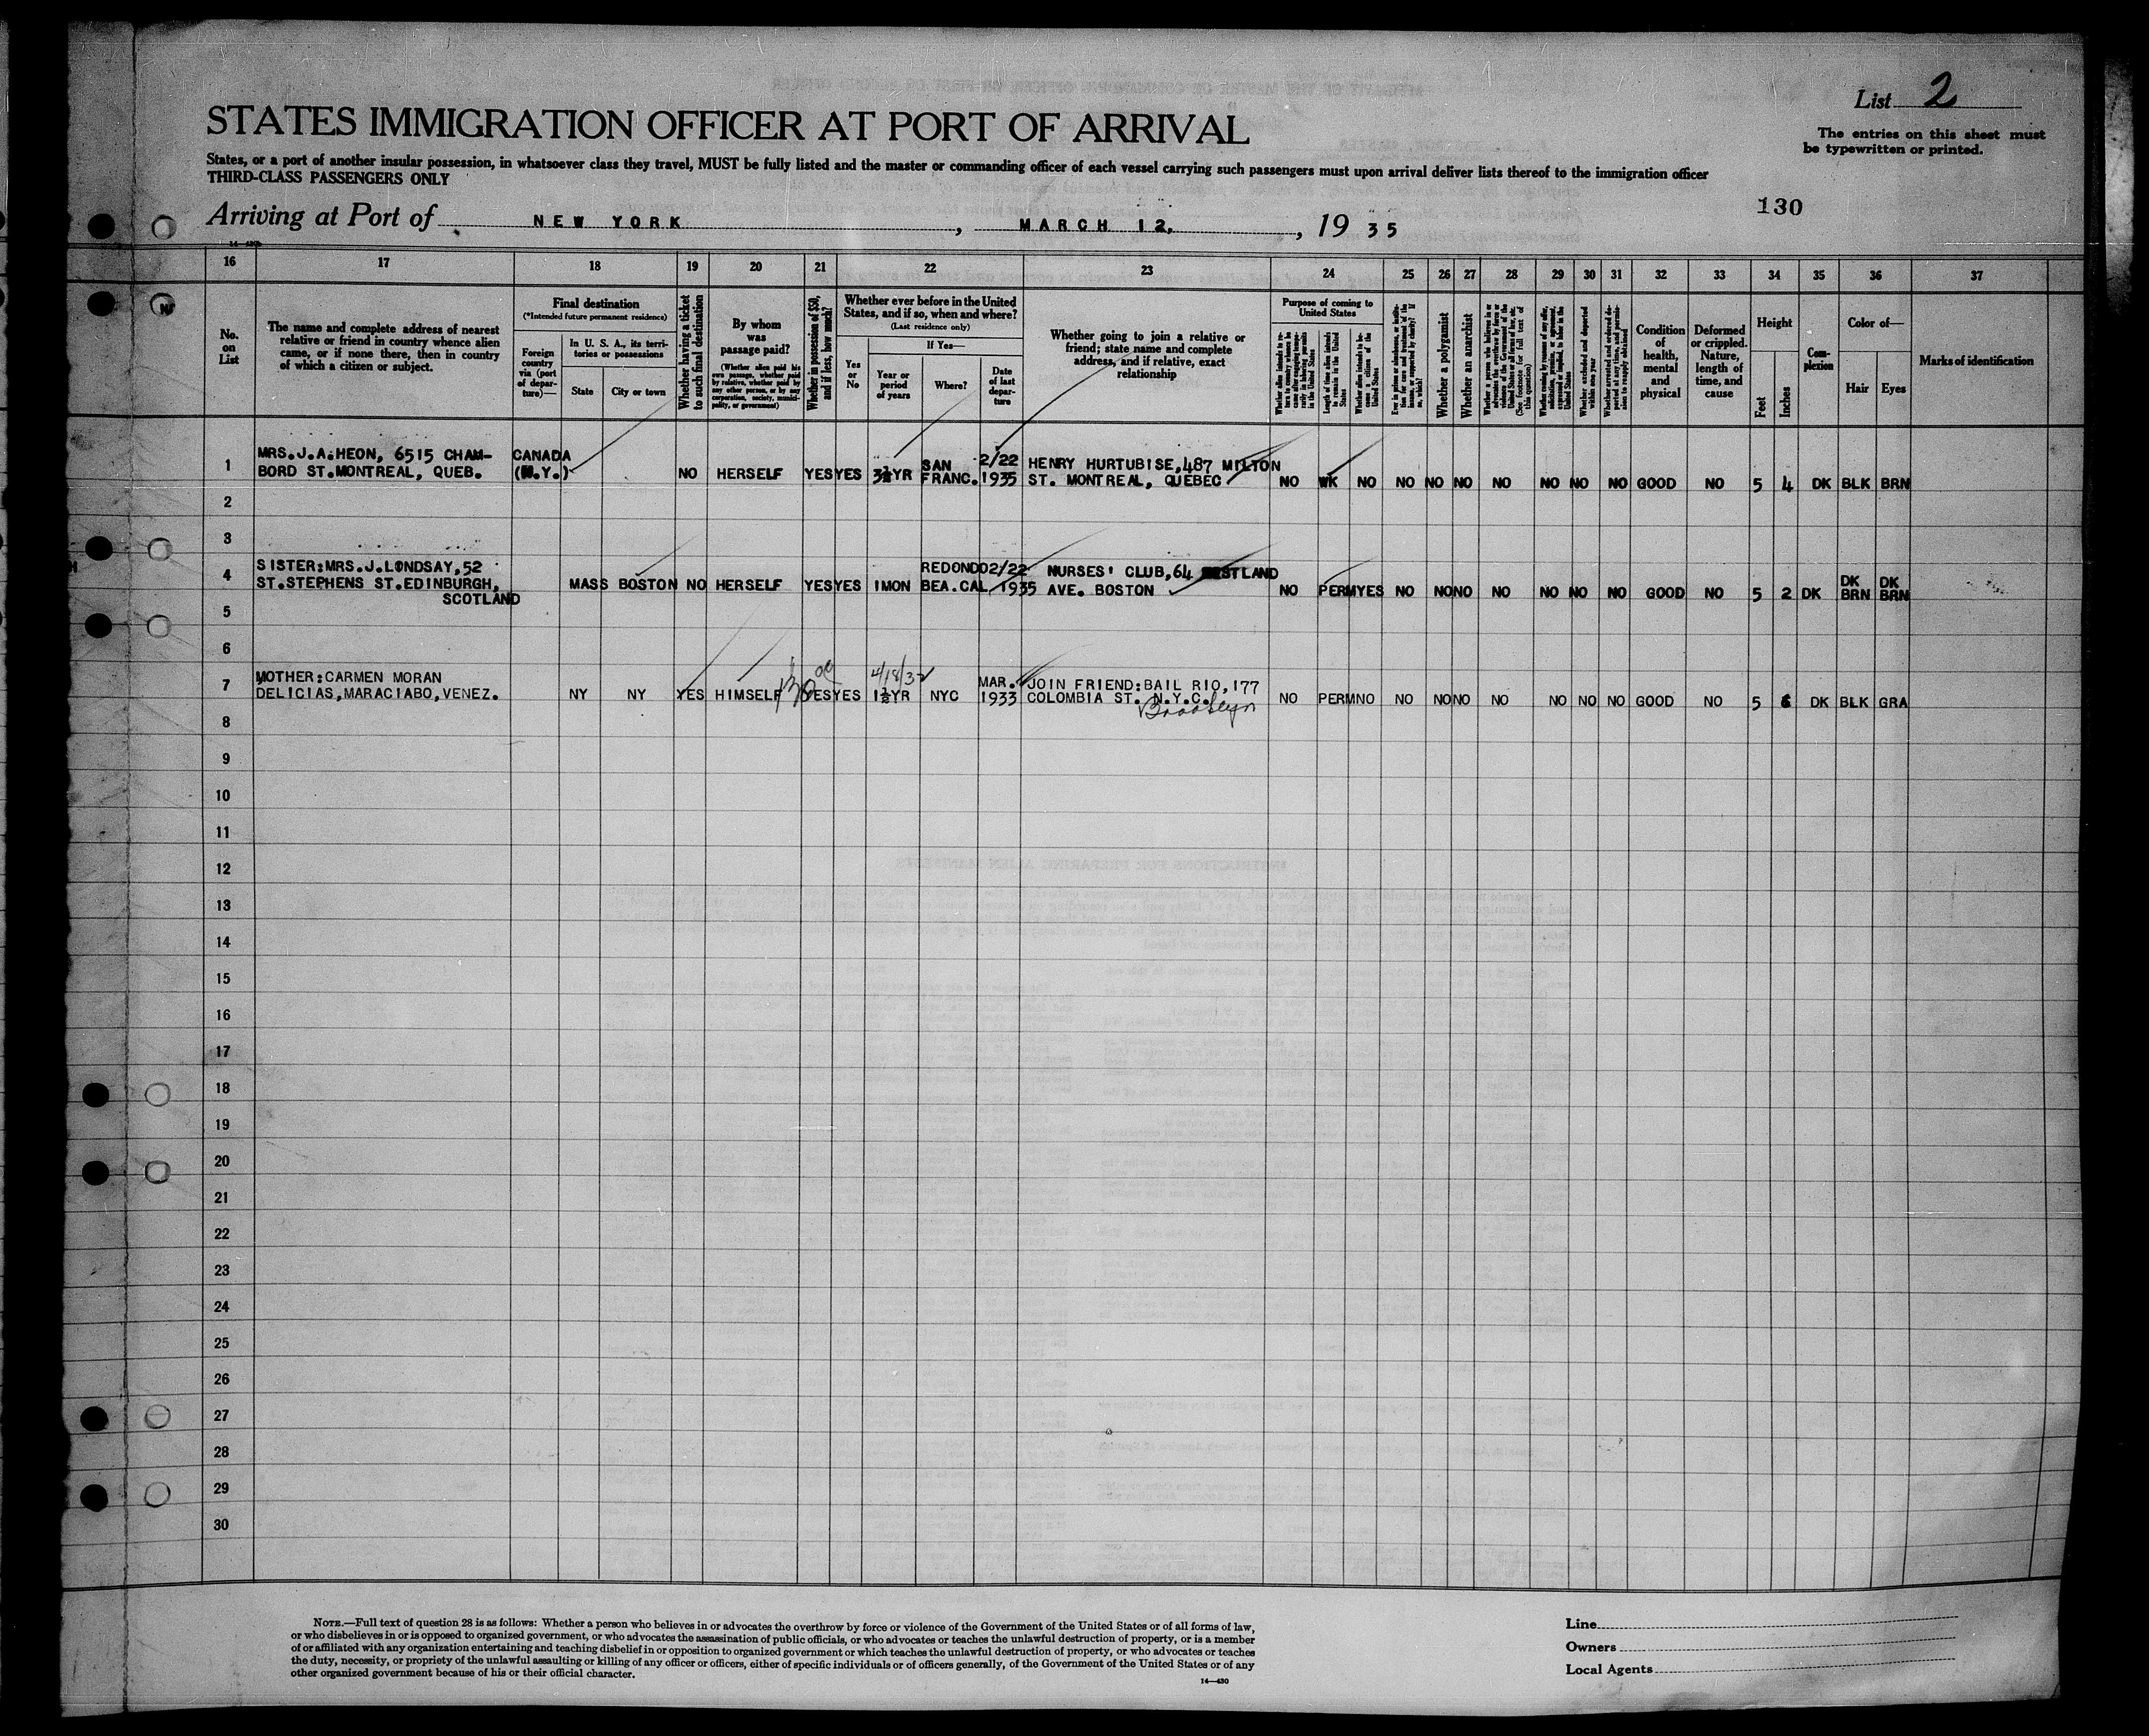 List 2
STATES IMMIGRATION OFFICER AT PORT OF ARRIVAL
The entries on this sheet must
be typewritten or printed.
States, or a port of another insular possession, in whatsoever class they travel, MUST be fully listed and the master or commanding officer of each vessel carrying such passengers must upon arrival deliver lists thereof to the immigration officer
THIRD-CLASS PASSENGERS ONLY
130
Arriving at Port of NEW YORK, MARCH 12, 1935
16 17 18 19 20 21 22 23 24 25 26 27 28 29 30 31 32 33 34 35 36 37
No. on List
The name and complete address of nearest relative or friend in country whence alien came, or if none there, then in country of which a citizen or subject.
Final destination
(*Intended future permanent residence)
Foreign country via (port of departure)—
In U. S. A., its territories or possessions
State
City or town
Whether having a ticket to such final destination
By whom was passage paid?
(Whether alien paid his own passage, whether paid by relative, whether paid by any other person, or by any corporation, society, municipality, or government)
Whether in possession of $50, and if less, how much?
Whether ever before in the United States, and if so, when and where?
(Last residence only)
Yes or No
If Yes—
Year or period of years
Where?
Date of last departure
Whether going to join a relative or friend; state name and complete address, and if relative, exact relationship
Purpose of coming to United States
Length of time alien intends to remain in the United States
Whether alien intends to become a citizen of the United States
Whether a polygamist
Whether an anarchist
(See footnote for full text of this question)
Whether excluded and deported within one year
Condition of health, mental and physical
Deformed or crippled. Nature, length of time, and cause
Height
Feet
Inches
Complexion
Color of—
Hair
Eyes
Marks of identification
1 MRS.J.A.HEON, 6515 CHAM- CANADA SAN 2/22 HENRY HURTUBISE,487 MILTON
BORD ST.MONTREAL, QUEB. (N.Y.) NO HERSELF YES YES 3½YR FRANC. 1935 ST. MONTREAL, QUEBEC NO WK NO NO NO NO NO NO NO NO GOOD NO 5 4 DK BLK BRN
2
3
4 SISTER:MRS.J.LONDSAY,52 REDONDO 2/22 NURSES' CLUB,64
ST.STEPHENS ST.EDINBURGH, MASS BOSTON NO HERSELF YES YES 1MON BEA.CAL. 1935 AVE. BOSTON NO PERM YES NO NO NO NO NO NO NO GOOD NO 5 2 DK DK BRN DK BRN
SCOTLAND
5
6
4/18/32
7 MOTHER:CARMEN MORAN MAR. JOIN FRIEND:BAIL RIO,177
DELICIAS,MARACIABO,VENEZ. NY NY YES HIMSELF YES YES 1½YR NYC 1933 COLOMBIA ST. N.Y.C. NO PERM NO NO NO NO NO NO NO NO GOOD NO 5 6 DK BLK GRA
Brooklyn
8
9
10
11
12
13
14
15
16
17
18
19
20
21
22
23
24
25
26
27
28
29
30
NOTE.—Full text of question 28 is as follows: Whether a person who believes in or advocates the overthrow by force or violence of the Government of the United States or of all forms of law,
or who disbelieves in or is opposed to organized government, or who advocates the assassination of public officials, or who advocates or teaches the unlawful destruction of property, or is a member
of or affiliated with any organization entertaining and teaching disbelief in or opposition to organized government or which teaches the unlawful destruction of property, or who advocates or teaches
the duty, necessity, or propriety of the unlawful assaulting or killing of any officer or officers, either of specific individuals or of officers generally, of the Government of the United States or of any
other organized government because of his or their official character.
14—430
Line
Owners
Local Agents